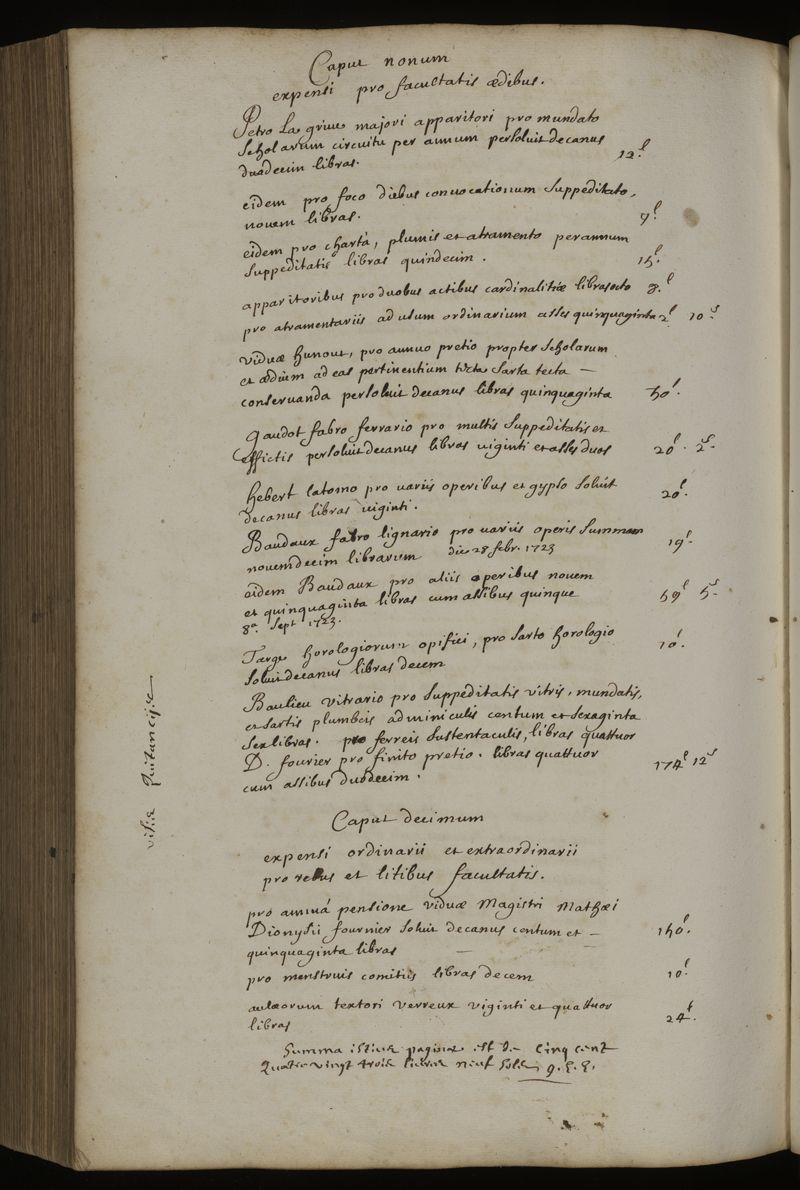 Caput nonum
expensi pro facultatis ædibus.
Petro La griue majori apparitori pro mundato
scholarum circuitu per annum persoluit decanus
duodecim libras. 12 l.
eidem pro foco diebus conuocationum suppeditato,
nouem libras. 9 l.
eidem pro chartâ, plumis et atramento per annum
suppeditatis libras quindecim. 15 l.
apparitoribus pro duobus actibus cardinalitiæ libras octo 8. l
pro atramentariis ad usum ordinarium asses quinquaginta 2 l 10 s.
viduæ hunout, pro annuo pretio propter scholarum
et ædium ad eas pertinentium sarta tecta —
conseruanda persoluit decanus libras quinquaginta 50 l.
gaudot fabro ferrario pro multis suppeditatis et
effictis persoluit decanus libras viginti et asses duos 20 l. 2 s.
hebert latomo pro variis operibus et gypso soluit
decanus libras viginti. 20 l.
Baudaux fabro lignario pro uariis operis summam
nouemdecim librarum die 28 febr. 1723 19 l.
eidem Baudaux pro aliis operibus nouem
et quinquaginta libras cum assibus quinque 59 l 5 s.
8a. sept 1723.
Targe horologiorum opifici, pro sarto horologio
soluit decanus libras decem 10 l.
Baulieu vitrario pro suppeditatis vitris, mundatis,
et sartis plumbeis adminiculis centum et sexaginta
sex libras. pro ferreis sustentaculis, libras quattuor
D. fourier pro finito pretio. libras quattuor
cum assibus duodecim. 174 l 12 s
visis quitancijs
Caput decimum
expensi ordinarii et extraordinarii
pro rebus et litibus facultatis.
pro annuâ pensione viduæ Magistri Mathæi
Dionysii fournier soluit decanus centum et —
quinquaginta libras — — 150 l.
pro menstruis comitiis libras decem 10 l.
aulæorum textori verreux viginti et quattuor
libras 24 l.
Summa istius paginæ est de Cinq cent
quatre vingt trois livres neuf sols,